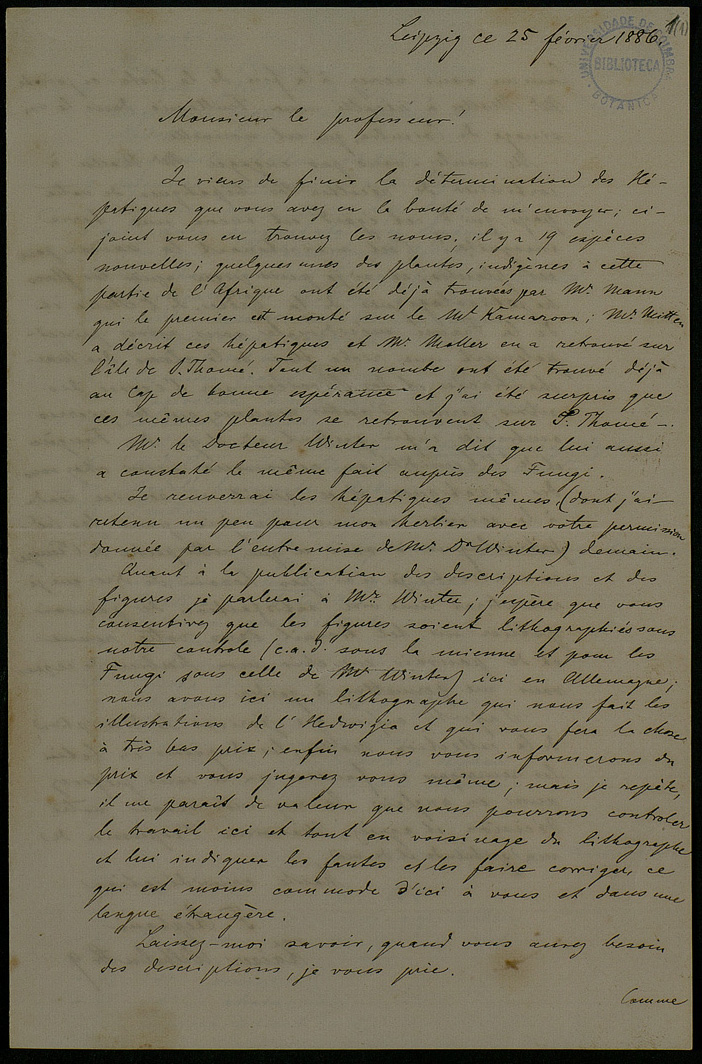 1(1)
Leipzig ce 25 février 1886.
UNIVERSIDADE DE COIMBRA
BIBLIOTECA
BOTANICA
Monsieur le professeur!
Je viens de finir la détermination des Hé-
patiques que vous avez eu la bonté de m'envoyer; ci-
joint vous en trouvez les noms, il y a 19 espèces
nouvelles; quelques unes des plantes, indigènes à cette
partie de l'Afrique ont été déjà trouvées par Mr. Mann
qui le premier est monté sur le Mt Kamaroon; Mr. Mitten
a décrit ces hépatiques et Mr. Moller en a retrouvé sur
l'île de S. Thomé. Tout un nombe ont été trouvé déjà
au Cap de bonne espérance et j'ai été surpris que
ces mêmes plantes se retrouvent sur S. Thomé-.
Mr. le Docteur Winter m'a dit que lui aussi
a constaté le même fait auprès des Fungi.
Je renverrai les hépatiques mêmes (dont j'ai-
retenu un peu pour mon herbier avec votre permission
donnée par l'entremise de Mr. Dr Winter) demain.
Quant à la publication des descriptions et des
figures je parlerai à Mr. Winter; j'espère que vous
consentirez que les figures soient lithographiées sous
notre controle (c.a.d. sous la mienne et pour les
Fungi sous celle de Mr Winter) ici en Allemagne;
nous avons ici un lithographe qui nous fait les
illustrations de l'Hedwigia et qui vous fera la chose
à très bas prix; enfin nous vous informerons du
prix et vous jugerez vous même; mais je repète,
il me paraît de valeur que nous pourrons controler
le travail ici et tout en voisinage du lithographe
et lui indiquer les fautes et les faire corriger, ce
qui est moins commode d'ici à vous et dans une
langue étrangère.
Laissez-moi savoir, quand vous aurez besoin
des descriptions, je vous prie.
Comme